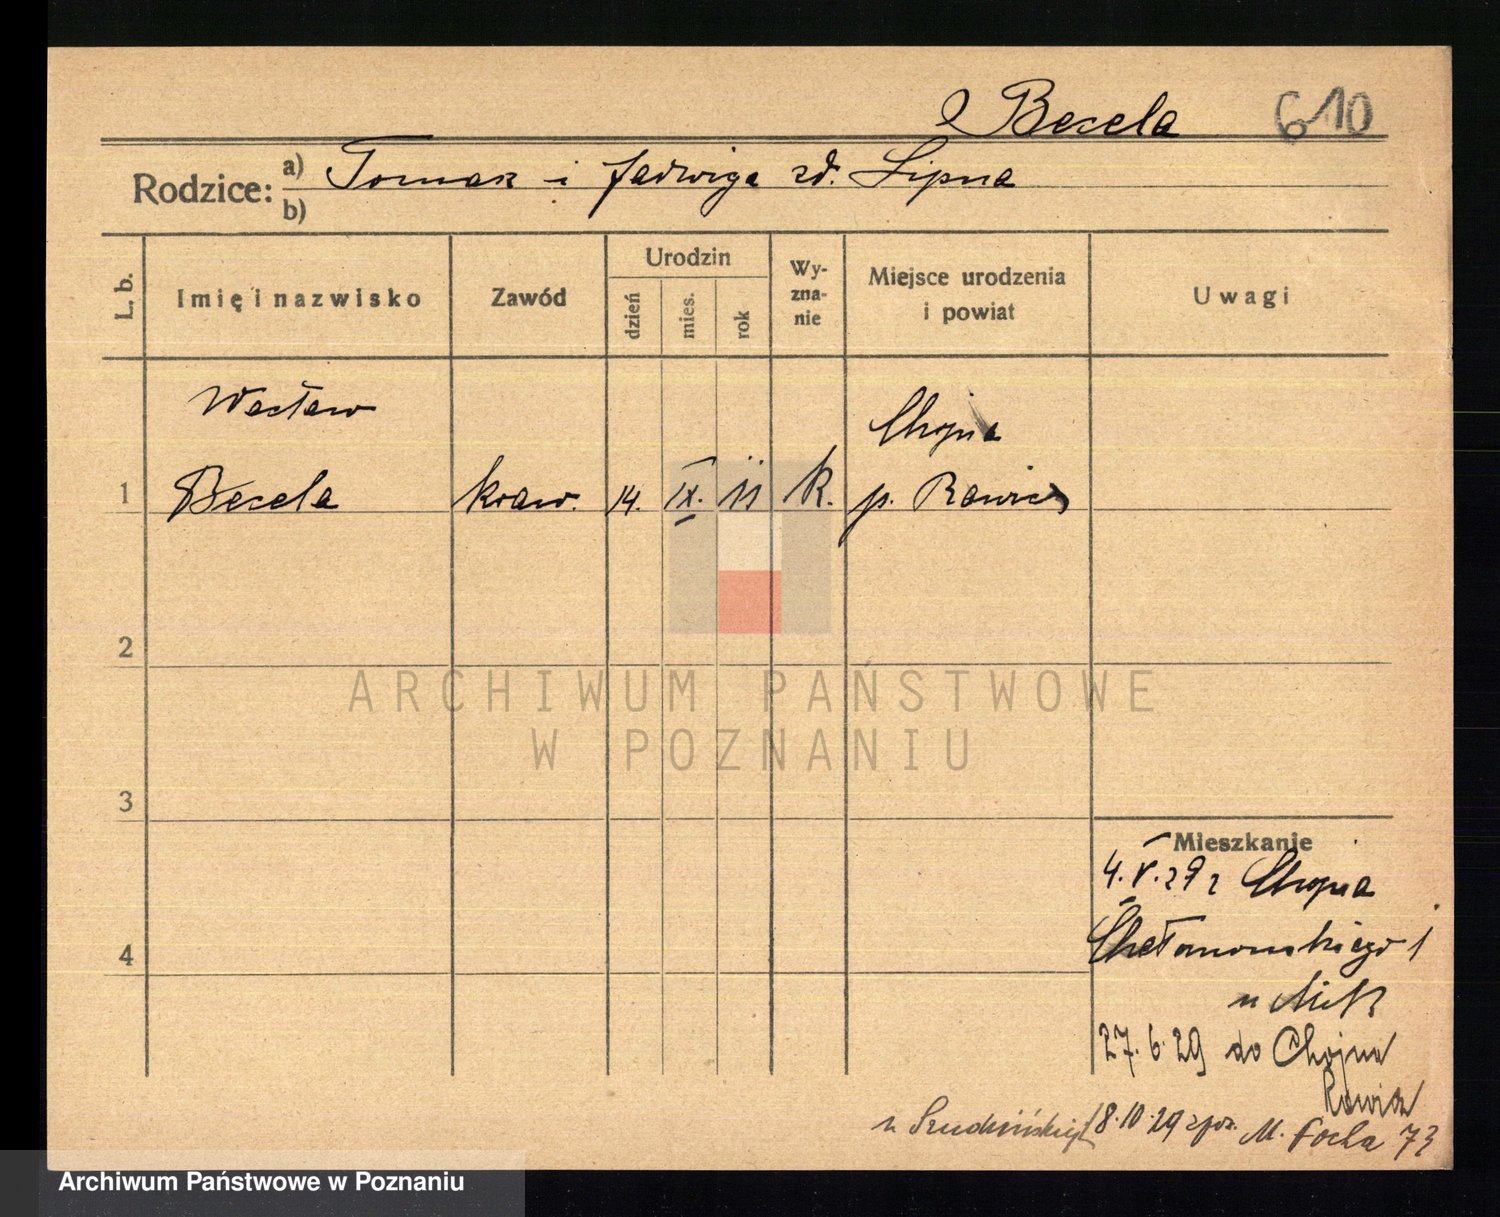 Becela 610
Rodzice: a) Tomasz i Jadwiga zd. Lipna
b)
L. b.
Imię i nazwisko
Zawód
Urodzin
dzień
mies.
rok
Wy-
zna-
nie
Miejsce urodzenia
i powiat
Uwagi
Wacław
Chojna
1 Becela kraw. 14. IX. 11 k. p. Rawicz
2
3
4
Mieszkanie
4. V. 29 z Chojna
1
u
27. 6. 29 do Chojna
Rawicz
u 8. 10. 29 M. Focha 73
ARCHIWUM PAŃSTWOWE
W POZNANIU
Archiwum Państwowe w Poznaniu